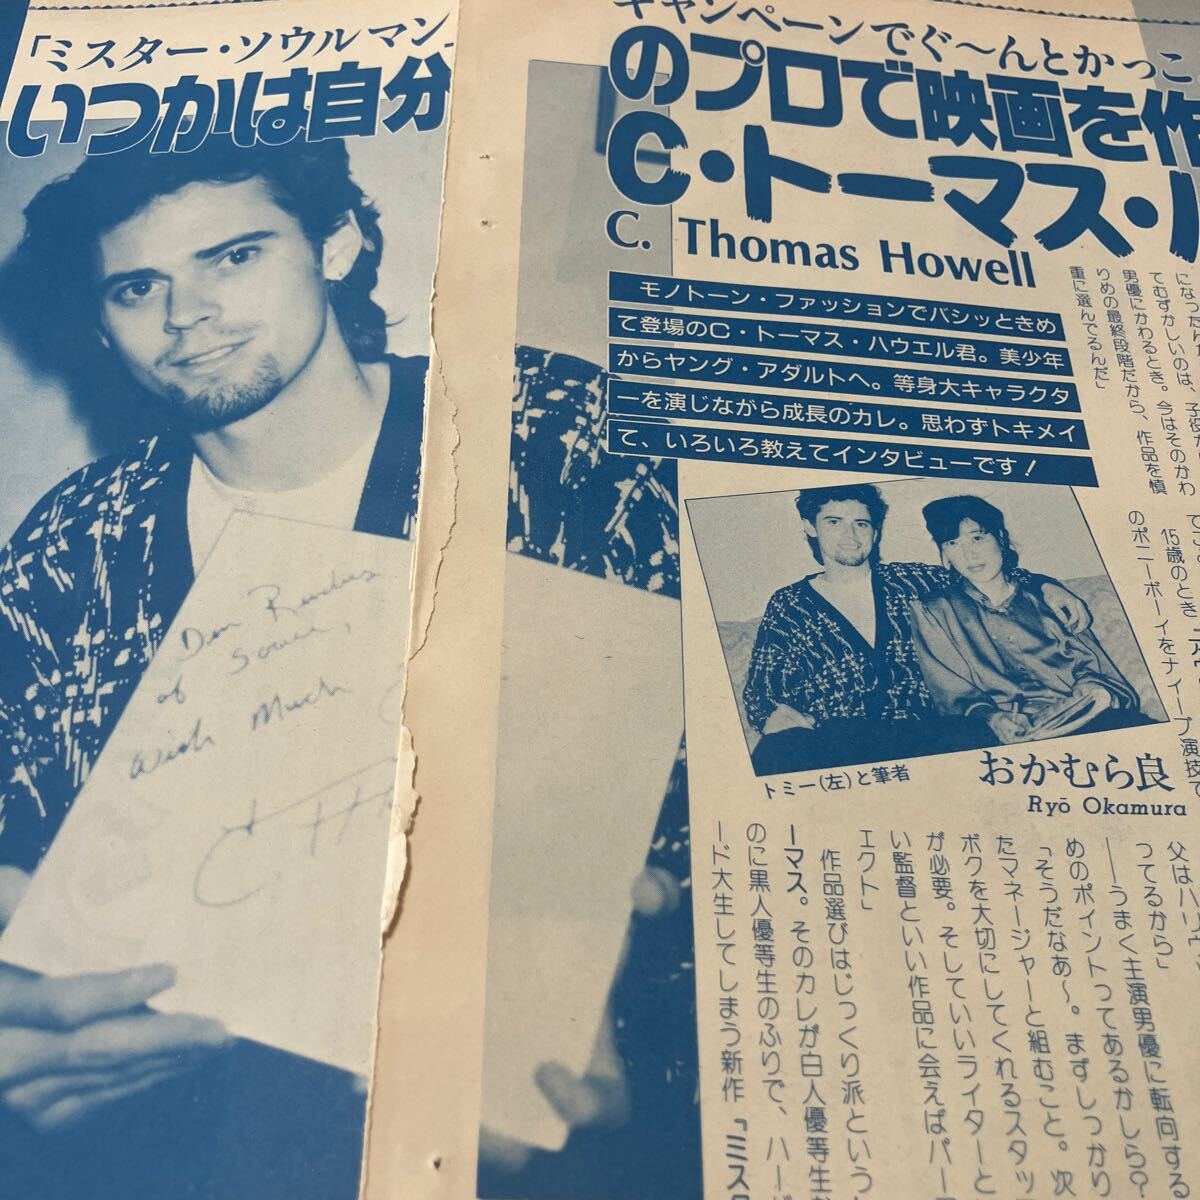 「ミスター・ソウルマン
キャンペーンでぐ〜んとかっこ
いつかは自分
のプロで映画を作
C・トーマス・ハ
C. Thomas Howell
モノトーン・ファッションでバシッときめ
て登場のC・トーマス・ハウエル君。美少年
からヤング・アダルトへ。等身大キャラクタ
ーを演じながら成長のカレ。思わずトキメイ
て、いろいろ教えてインタビューです！
になったんだ
てむずかしいのは、子役から
男優にかわるとき。今はそのかわ
りめの最終段階だから、作品を慎
重に選んでるんだ」
15歳のとき
のポニーボーイをナイーブ演技で
トミー(左)と筆者
おかむら良
Ryō Okamura
with Much
父はハリウ
ってるから」
――うまく主演男優に転向する
めのポイントってあるかしら？
「そうだなあ〜。まずしっかり
たマネージャーと組むこと。次
ボクを大切にしてくれるスタッ
が必要。そしていいライターと
い監督といい作品に会えばパーフ
ェクト」
作品選びはじっくり派という
ーマス。そのカレが白人優等生
のに黒人優等生のふりで、ハーバ
ード大生してしまう新作『ミス